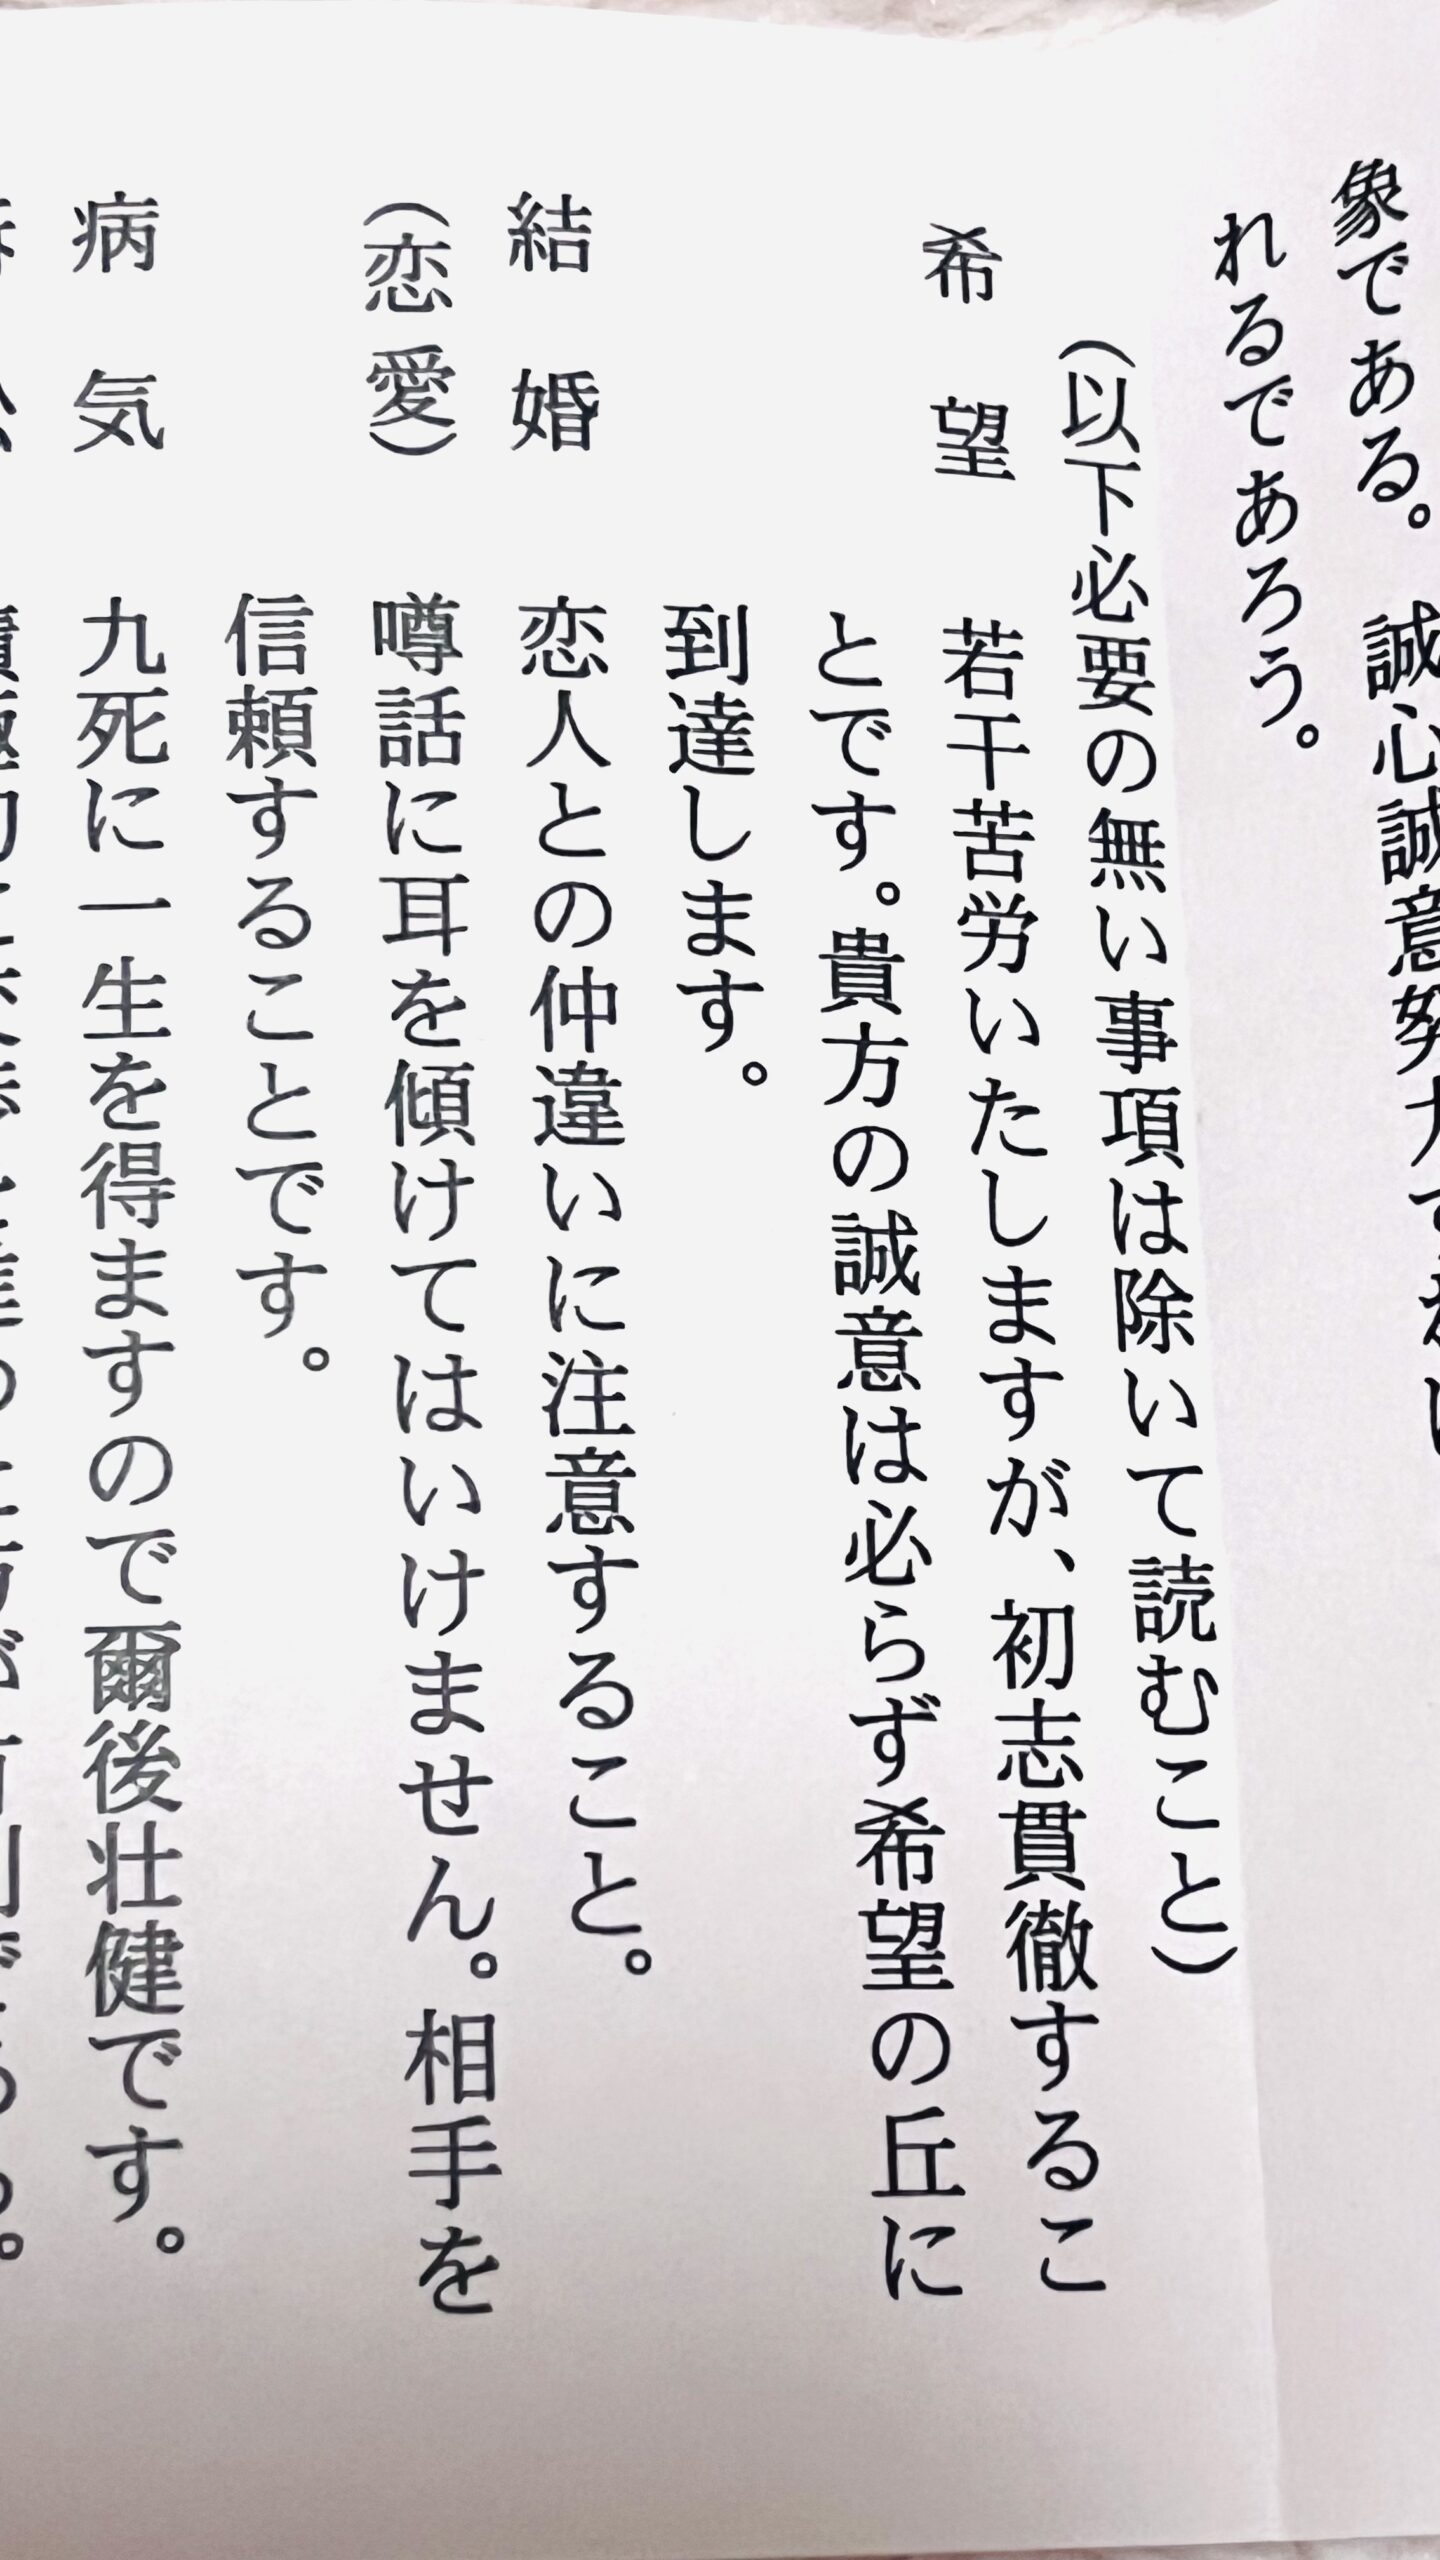 象である。誠心誠意努力すれば
れるであろう。
（以下必要の無い事項は除いて読むこと）
希望　若干苦労いたしますが、初志貫徹するこ
とです。貴方の誠意は必らず希望の丘に
到達します。
結婚　恋人との仲違いに注意すること。
（恋愛）　噂話に耳を傾けてはいけません。相手を
信頼することです。
病気　九死に一生を得ますので爾後壮健です。